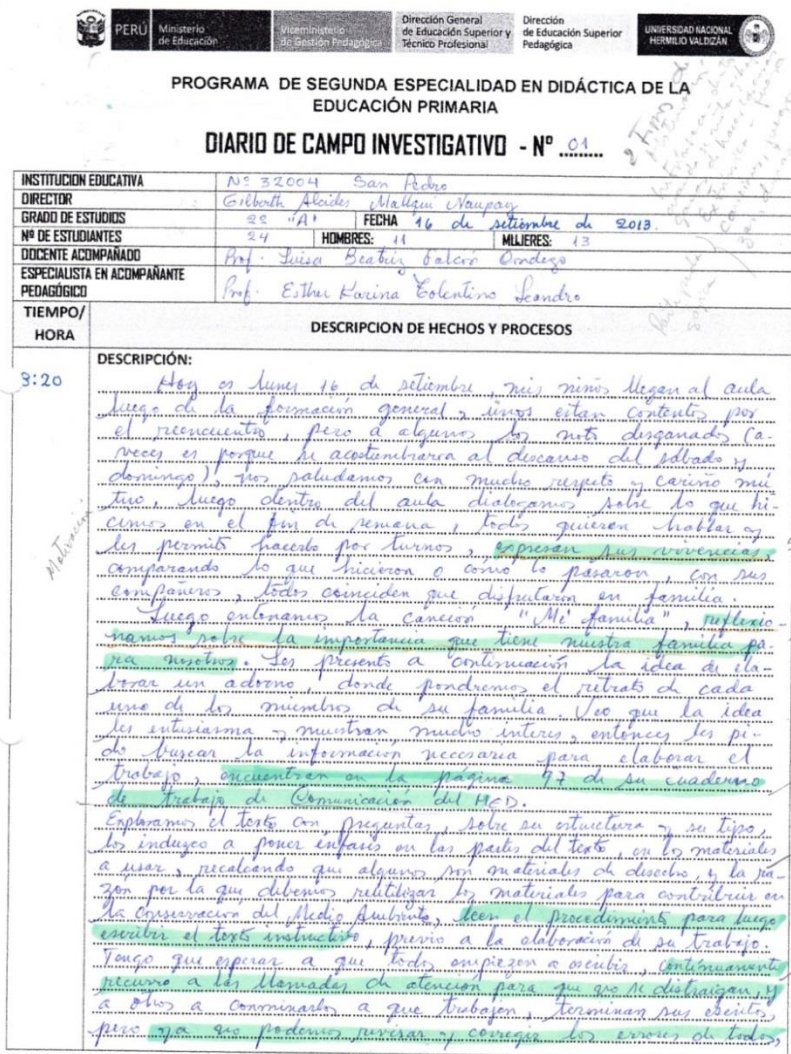 PERÚ
Ministerio
de Educación
Viceministerio
de Gestión Pedagógica
Dirección General
de Educación Superior y
Técnico Profesional
Dirección
de Educación Superior
Pedagógica
UNIVERSIDAD NACIONAL
HERMILIO VALDIZÁN
PROGRAMA DE SEGUNDA ESPECIALIDAD EN DIDÁCTICA DE LA
EDUCACIÓN PRIMARIA
DIARIO DE CAMPO INVESTIGATIVO - Nº 01
2 Tipos de
INSTITUCION EDUCATIVA Nº 32004 San Pedro
DIRECTOR Gilberth Alcides Mallqui Naupay
GRADO DE ESTUDIOS 2º "A" FECHA 16 de setiembre de 2013.
Nº DE ESTUDIANTES 24 HOMBRES: 11 MUJERES: 13
DOCENTE ACOMPAÑADO Prof. Luisa Beatriz Falcón Ondezo
ESPECIALISTA EN ACOMPAÑANTE
PEDAGÓGICO Prof. Esther Karina Tolentino Leandro
TIEMPO/
HORA
DESCRIPCION DE HECHOS Y PROCESOS
DESCRIPCIÓN:
8:20 Hoy es lunes 16 de setiembre, mis niños llegan al aula
luego de la formación general, unos estan contentos por
el reencuentro, pero a algunos los noto desganados (a-
veces es porque se acostumbraron al descanso del sábado y
domingo), nos saludamos con mucho respeto y cariño mú
tuo, luego dentro del aula dialogamos sobre lo que hi-
cimos en el fin de semana, todos quieren hablar y
les permito hacerlo por turnos, expresan sus vivencias,
Motivación
comparando lo que hicieron o como lo pasaron, con sus
compañeros, todos coinciden que disfrutaron en familia.
Luego entonamos la canción "Mi familia", reflexio-
namos sobre la importancia que tiene nuestra familia pa-
ra nosotros. Les presento a continuación la idea de ela-
borar un adorno, donde pondremos el retrato de cada
uno de los miembros de su familia. Veo que la idea
les entusiasma y muestran mucho interes, entonces les pi-
do buscar la información necesaria para elaborar el
trabajo, encuentran en la página 97 de su cuaderno
de trabajo de Comunicación del MED.
Exploramos el texto con preguntas, sobre su estructura y su tipo,
los induzco a poner énfasis en las partes del texto, en los materiales
a usar, recalcando que algunos son materiales de desecho, y la ra-
zon por la que debemos reutilizar los materiales para contribuir en
la conservación del Medio Ambiente, leen el procedimiento para luego
escribir el texto instructivo, previo a la elaboración de su trabajo.
Tengo que esperar a que todos empiezen a escribir, continuamente
recurro a las llamadas de atención para que no se distraigan, y
a otros a conminarlos a que trabajen, terminan sus escritos,
pero ya no podemos revisar y corregir los errores de todos,